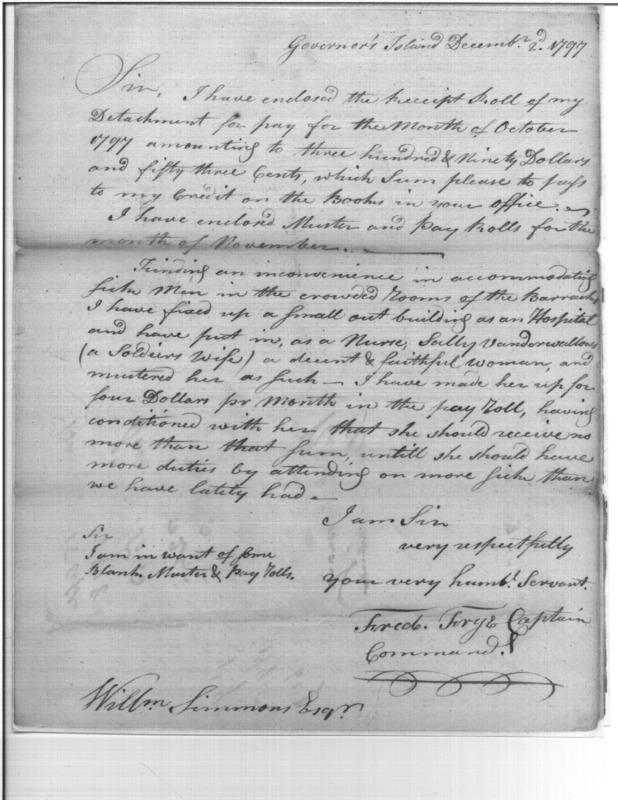 Governor's Island Decembr. 2d. 1797
Sir, I have enclosed the Receipt Roll of my
Detachment for pay for the Month of October
1797 amounting to three hundred & Ninety Dollars
and fifty three Cents, which Sum please to pass
to my Credit on the Books in your office. 
I have enclosed Muster and Pay Rolls for the
month of November. 
Finding an inconvenience in accommodating
Sick Men in the crowded Rooms of the Barracks
I have fixed up a small out building as an Hospital
and have put in, as a Nurse, Sally Vanderwallons
(a Soldiers Wife) a decent & faithful woman, and
mustered her as such — I have made her up for
four Dollars pr Month in the pay roll, having
conditioned with her that she should receive no
more than that Sum, untill she should have
more duties by attending on more sick than
we have lately had.
I am Sir
very respectfully
Your very humbl. Servant.
Fredk. Frye Captain
Command.g
Sir
I am in want of some
Blank Muster & Pay rolls.
Willm Simmons Esqr.